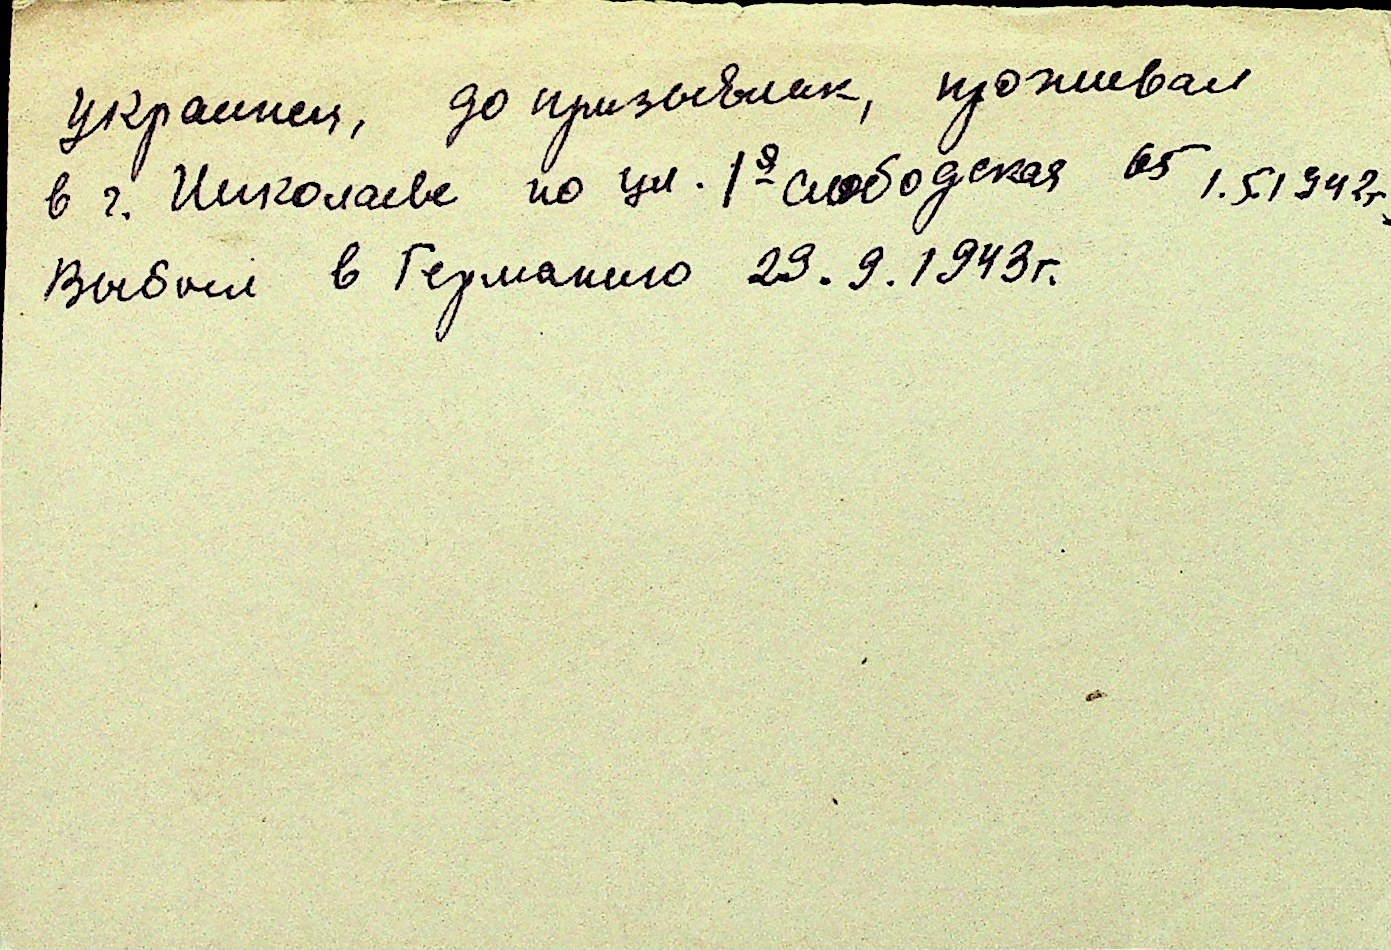 украинец, допризывник, проживал
в г. Николаеве по ул. 1я Слободская 65 1.5.1942г.
Выбыл в Германию 29.9.1943г.